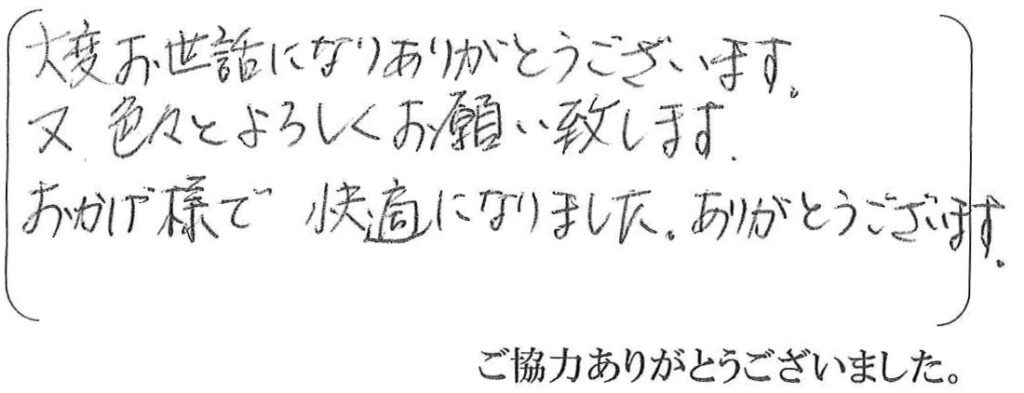 大変お世話になりありがとうございます。
又 色々とよろしくお願い致します.
おかげ様で 快適になりました。ありがとうございます。
ご協力ありがとうございました。